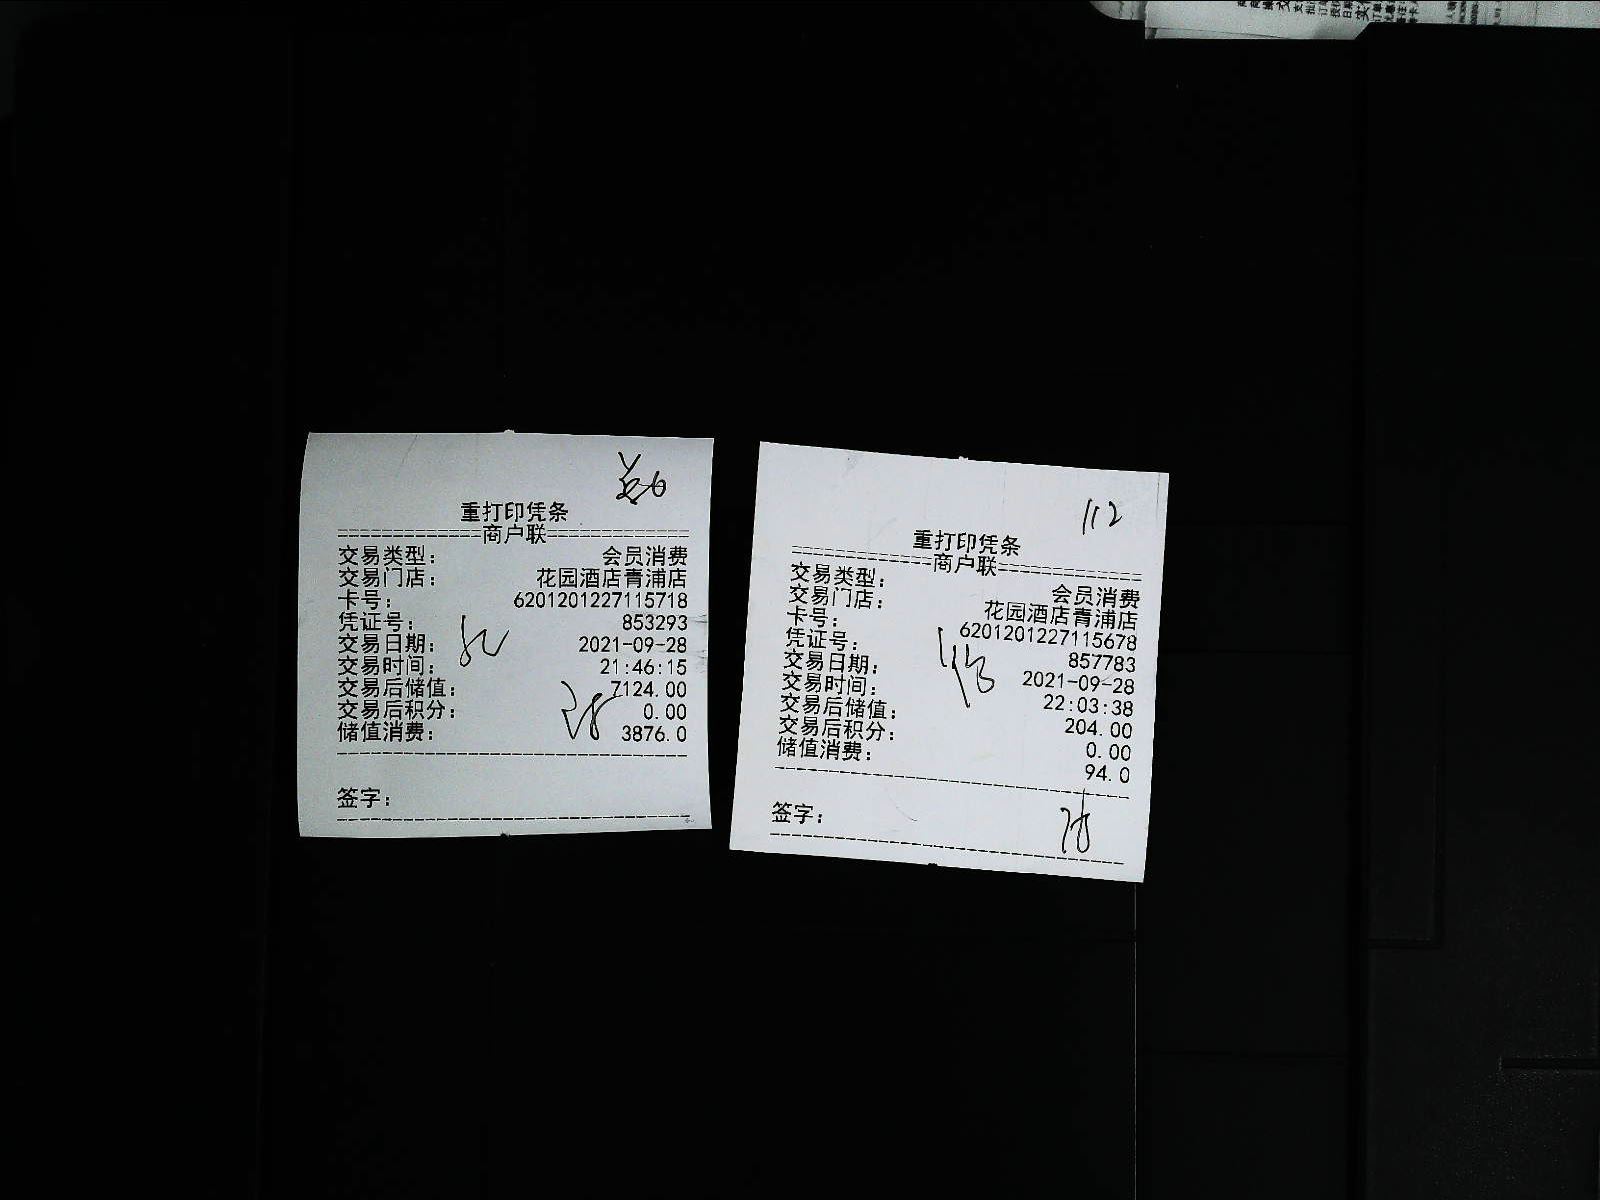 重打印凭条
=============商户联=============
交易类型： 会员消费
交易门店： 花园酒店青浦店
卡号： 6201201227115718
凭证号： 853293
交易日期： 2021-09-28
交易时间： 21:46:15
交易后储值： 7124.00
交易后积分： 0.00
储值消费： 3876.0
签字：
112
重打印凭条
=============商户联=============
交易类型： 会员消费
交易门店： 花园酒店青浦店
卡号： 6201201227115678
凭证号： 857783
交易日期： 2021-09-28
交易时间： 22:03:38
交易后储值： 204.00
交易后积分： 0.00
储值消费： 94.0
签字：